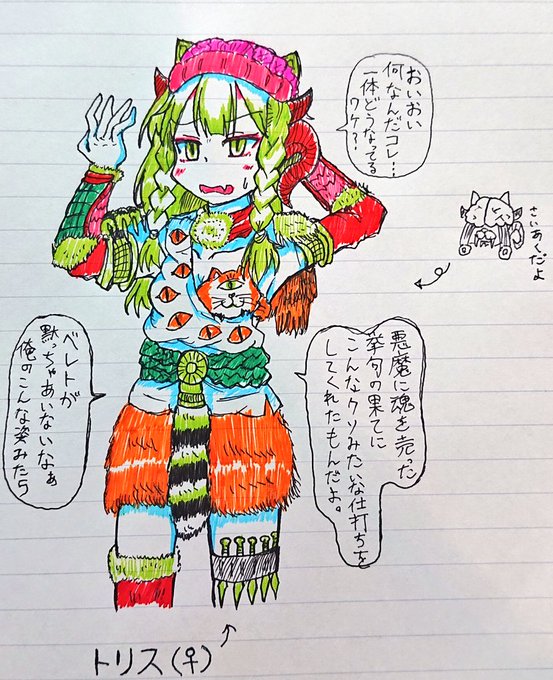 おいおい
何なんだコレ…
一体どうなってる
ワケ？
さいあくだよ
悪魔に魂を売った
挙句の果てに
こんなクソみたいな仕打ちを
してくれたもんだよ。
ベレトが
黙っちゃあいないなぁ
俺のこんな姿みたら
トリス(♀)